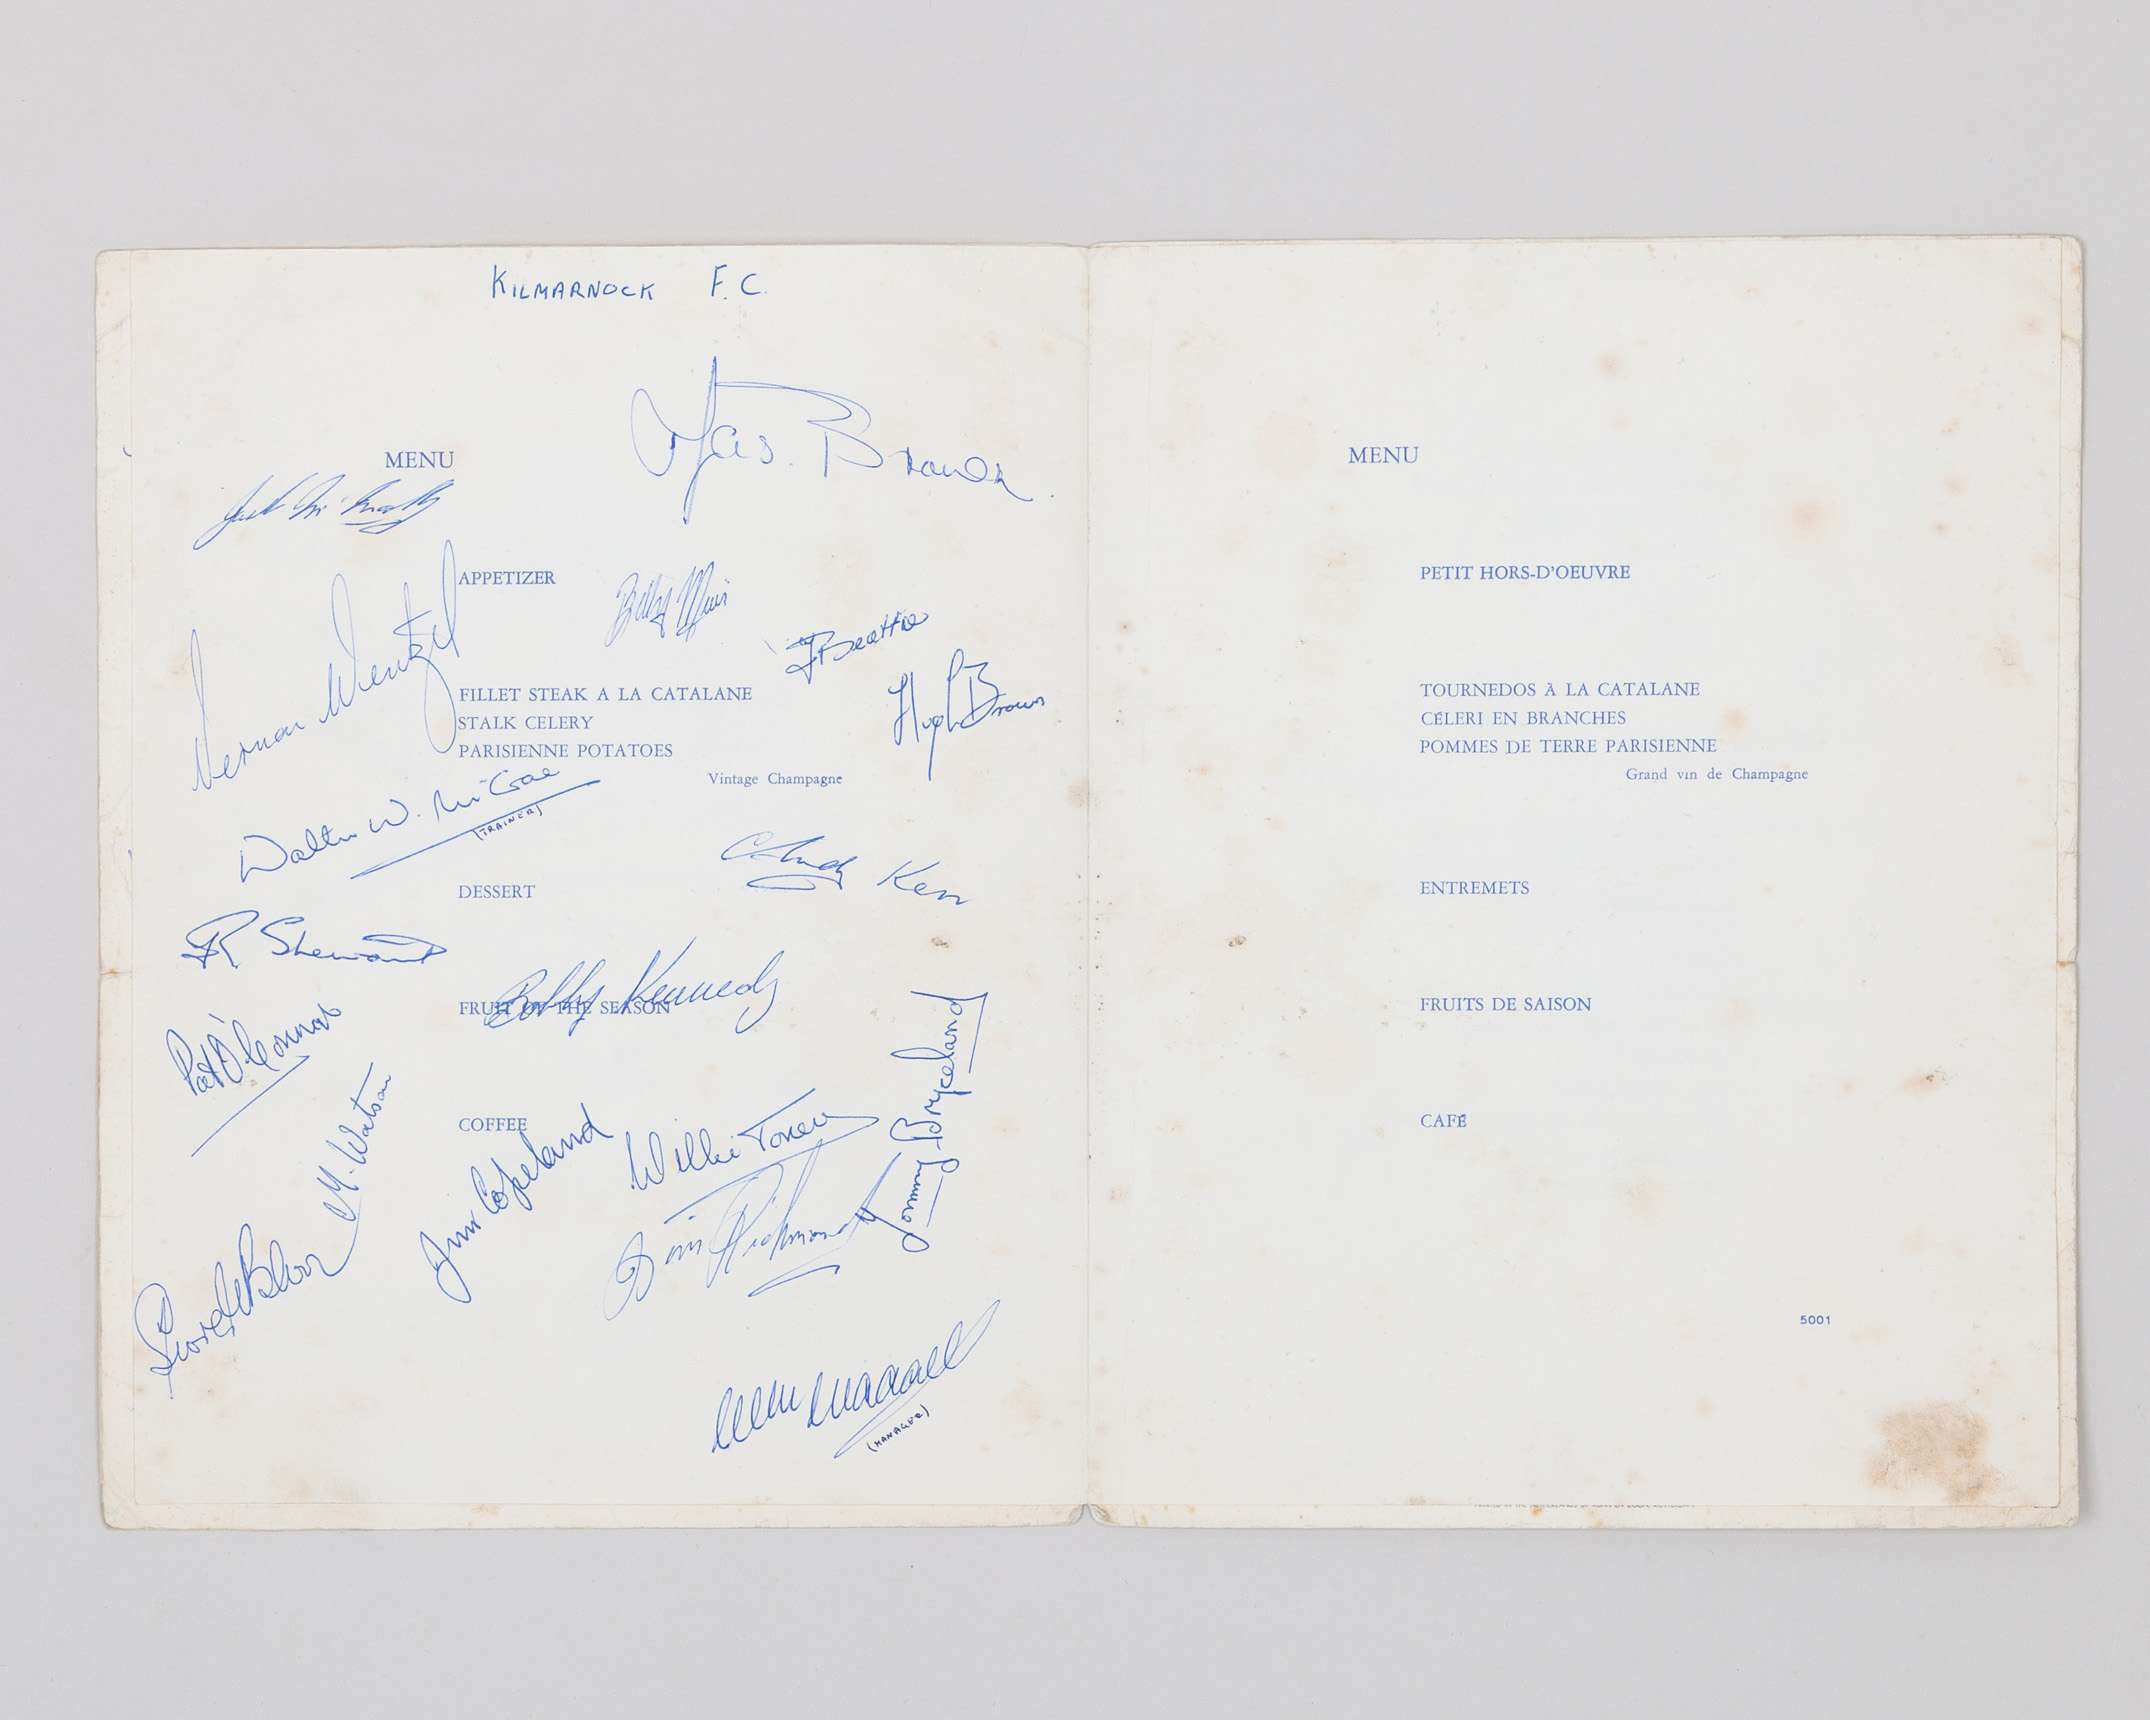 KILMARNOCK F.C.
Jas. Brown
MENU
APPETIZER
Billy Muir
Vernon Wentzel
F Beattie
Hugh Brown
FILLET STEAK A LA CATALANE
STALK CELERY
PARISIENNE POTATOES
Vintage Champagne
Walter W. McCrae
(TRAINER)
Andy Kerr
DESSERT
R. Stewart
Bobby Kennedy
FRUIT OF THE SEASON
Pat O'Connor
Tommy Bryceland
M. Watson
COFFEE
Jim Copeland
Willie Toner
Jim Richmond
(MANAGER)
MENU
PETIT HORS-D'OEUVRE
TOURNEDOS À LA CATALANE
CÉLERI EN BRANCHES
POMMES DE TERRE PARISIENNE
Grand vin de Champagne
ENTREMETS
FRUITS DE SAISON
CAFÉ
5001